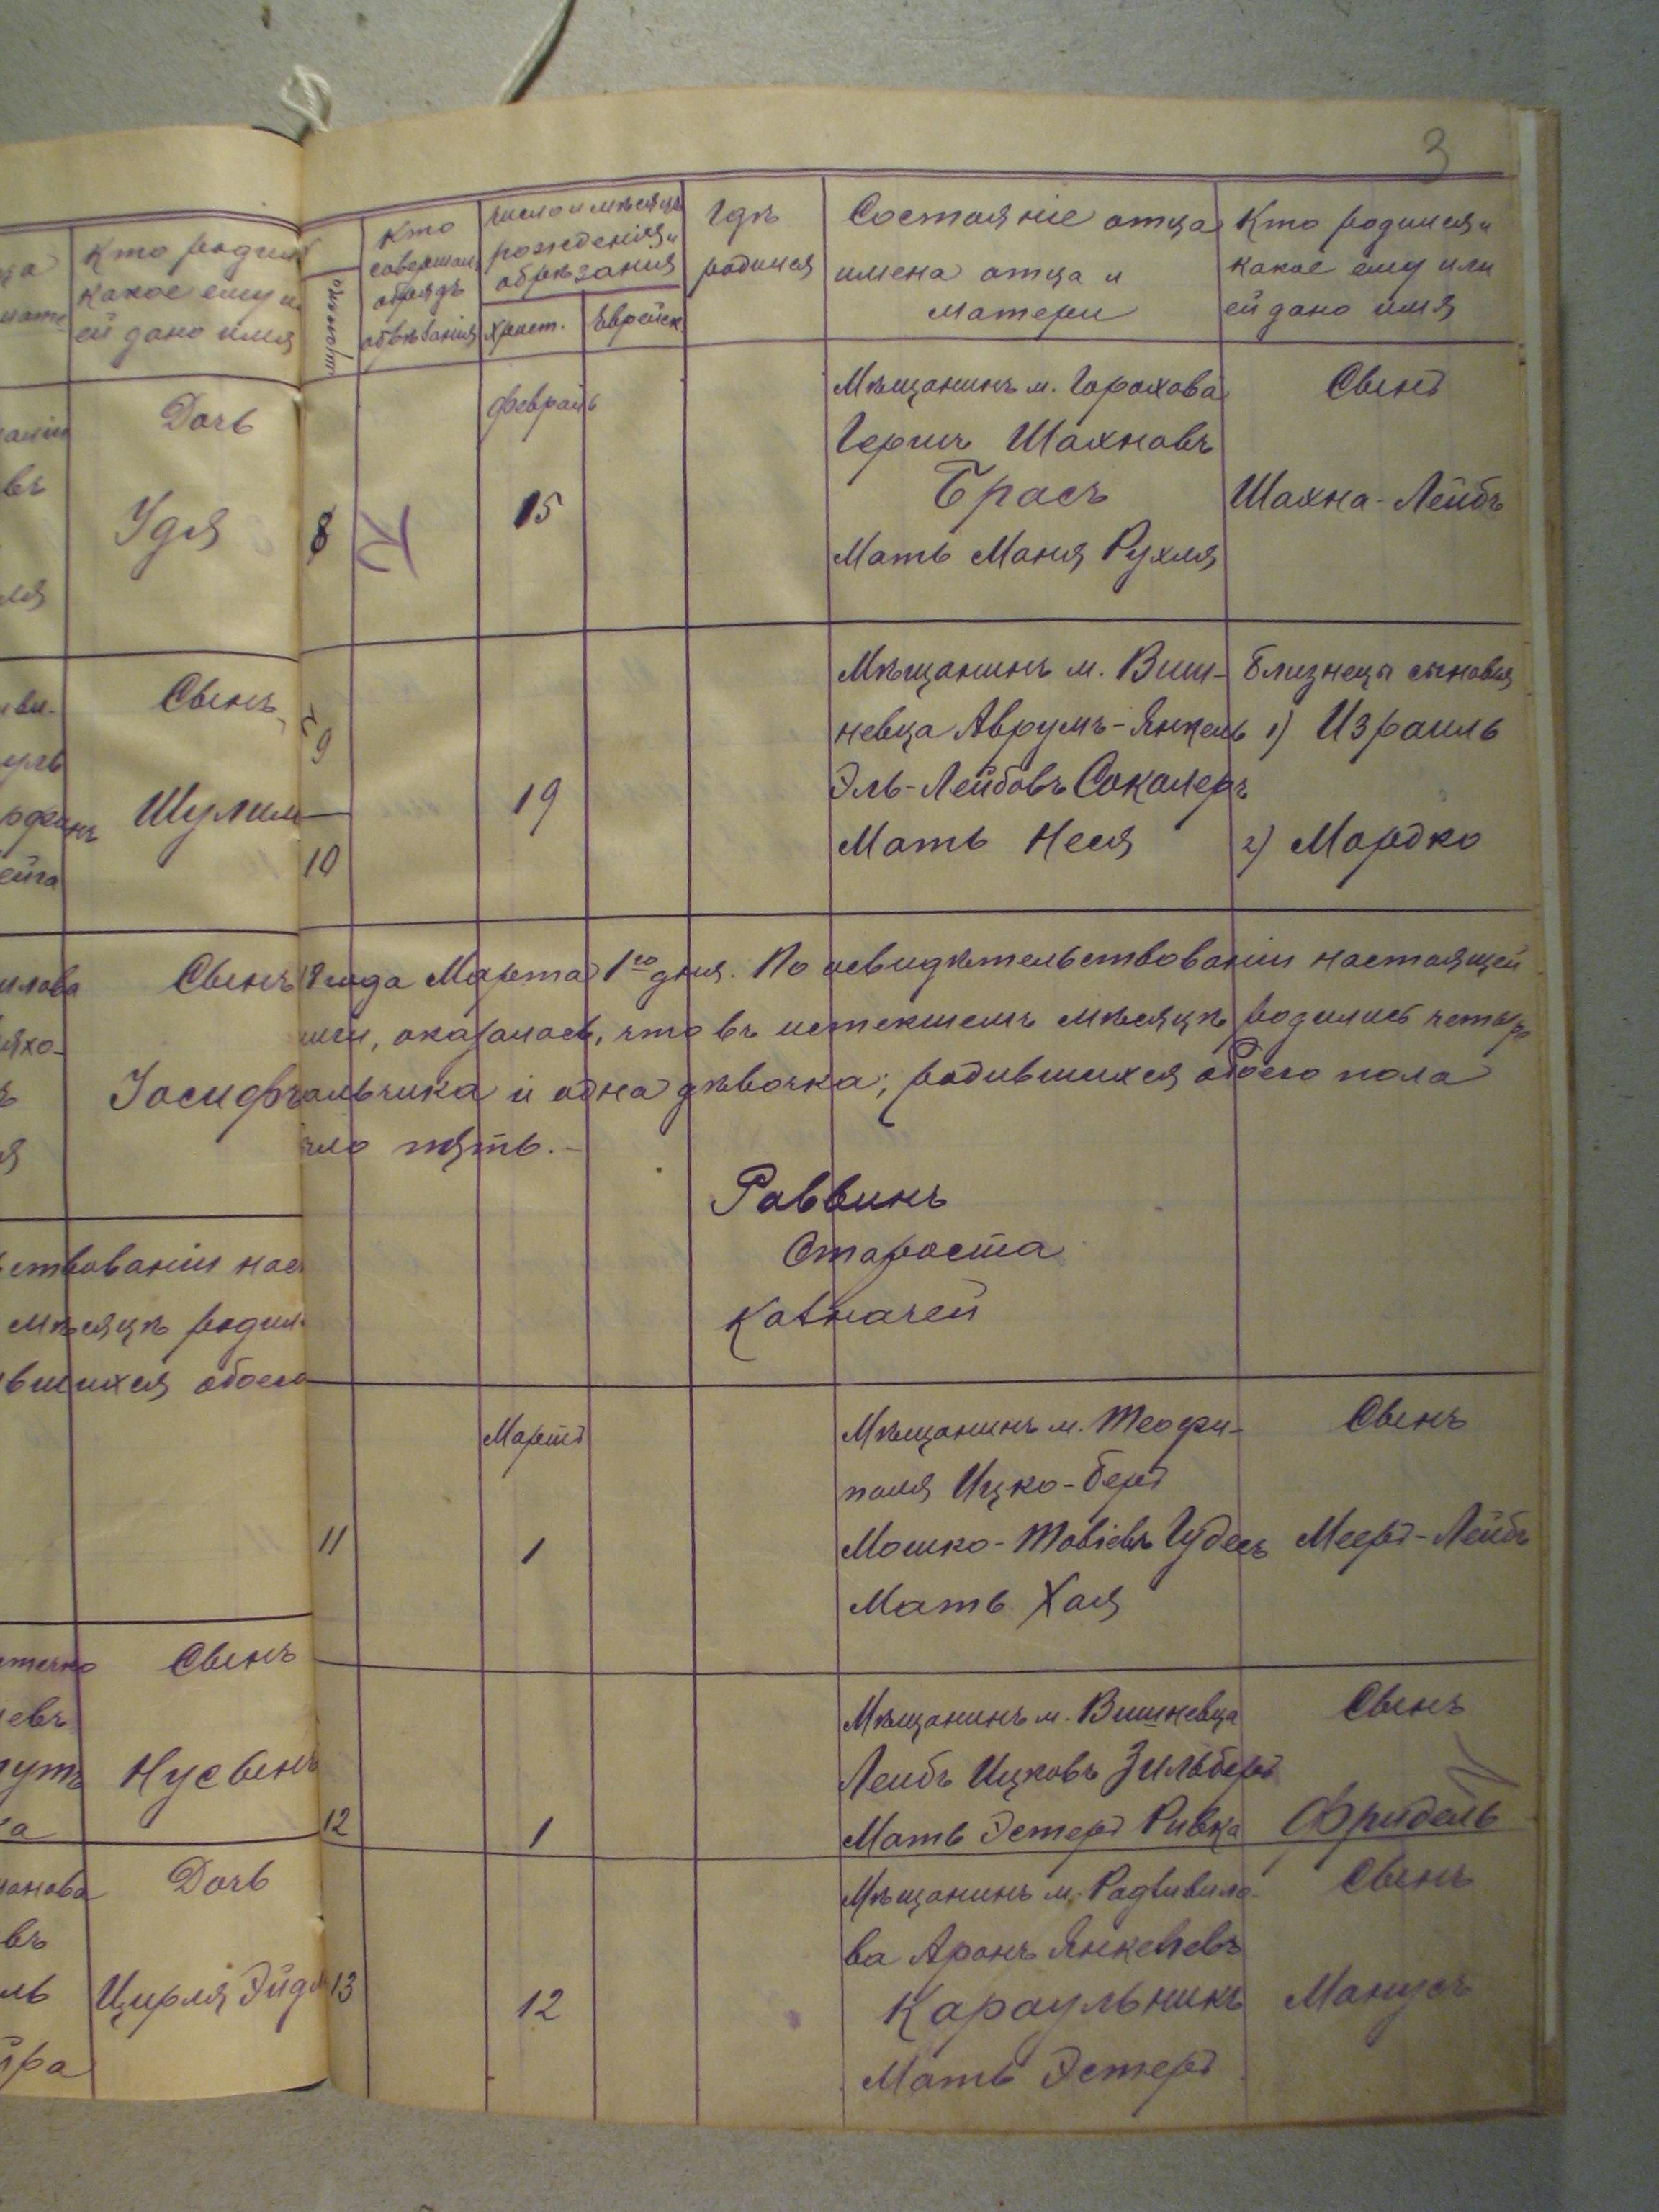 3
Кто родил
какое ему и
ей дано имя
Дочь
Удя
Сынъ
Шулим
Сынъ
Іосифъ
ствованіи нас
мѣсяцѣ родил
вшихся обоего
Сынъ
Нусынъ
Дочь
Цирля Эйд
Кто
совершал
обрядъ
обрѣзанія
Число и мѣсяцъ
рожденія и
обрѣзанія
Христ.
Еврейск
Гдѣ
родился
Состояніе отца
имена отца и
матери
Кто родился и
какое ему или
ей дано имя
8
Февраль
15
Мѣщанинъ м. Горохова
Гершъ Шахновъ
Брасъ
Мать Маня Рухля
Сынъ
Шахна-Лейбъ
9
10
19
Мѣщанинъ м. Виш-
невца Аврумъ-Янкель
Эль-Лейбовъ Соколеръ
Мать Неся
Близнецы сыновья
1) Израиль
2) Мордко
18 года Марта 1го дня. По освидѣтельствованіи настоящей
иги, оказалось, что въ истекшемъ мѣсяцѣ родились четыр
альчика и одна дѣвочка; родившихся обоего пола
ло пять.-
Раввинъ
Староста
Казначей
11
Мартъ
1
Мѣщанинъ м. Теофи-
поля Ицко-Беръ
Мошко-Товіевъ Гудесъ
Мать Хая
Сынъ
Мееръ-Лейбъ
12
1
Мѣщанинъ м. Вишневца
Лейбъ Ицковъ Зильберъ
Мать Эстеръ Ривка
Сынъ
Фридель
13
12
Мѣщанинъ м. Радзивило-
ва Аронъ Янкелевъ
Караульникъ
Мать Эстеръ
Сынъ
Манусъ